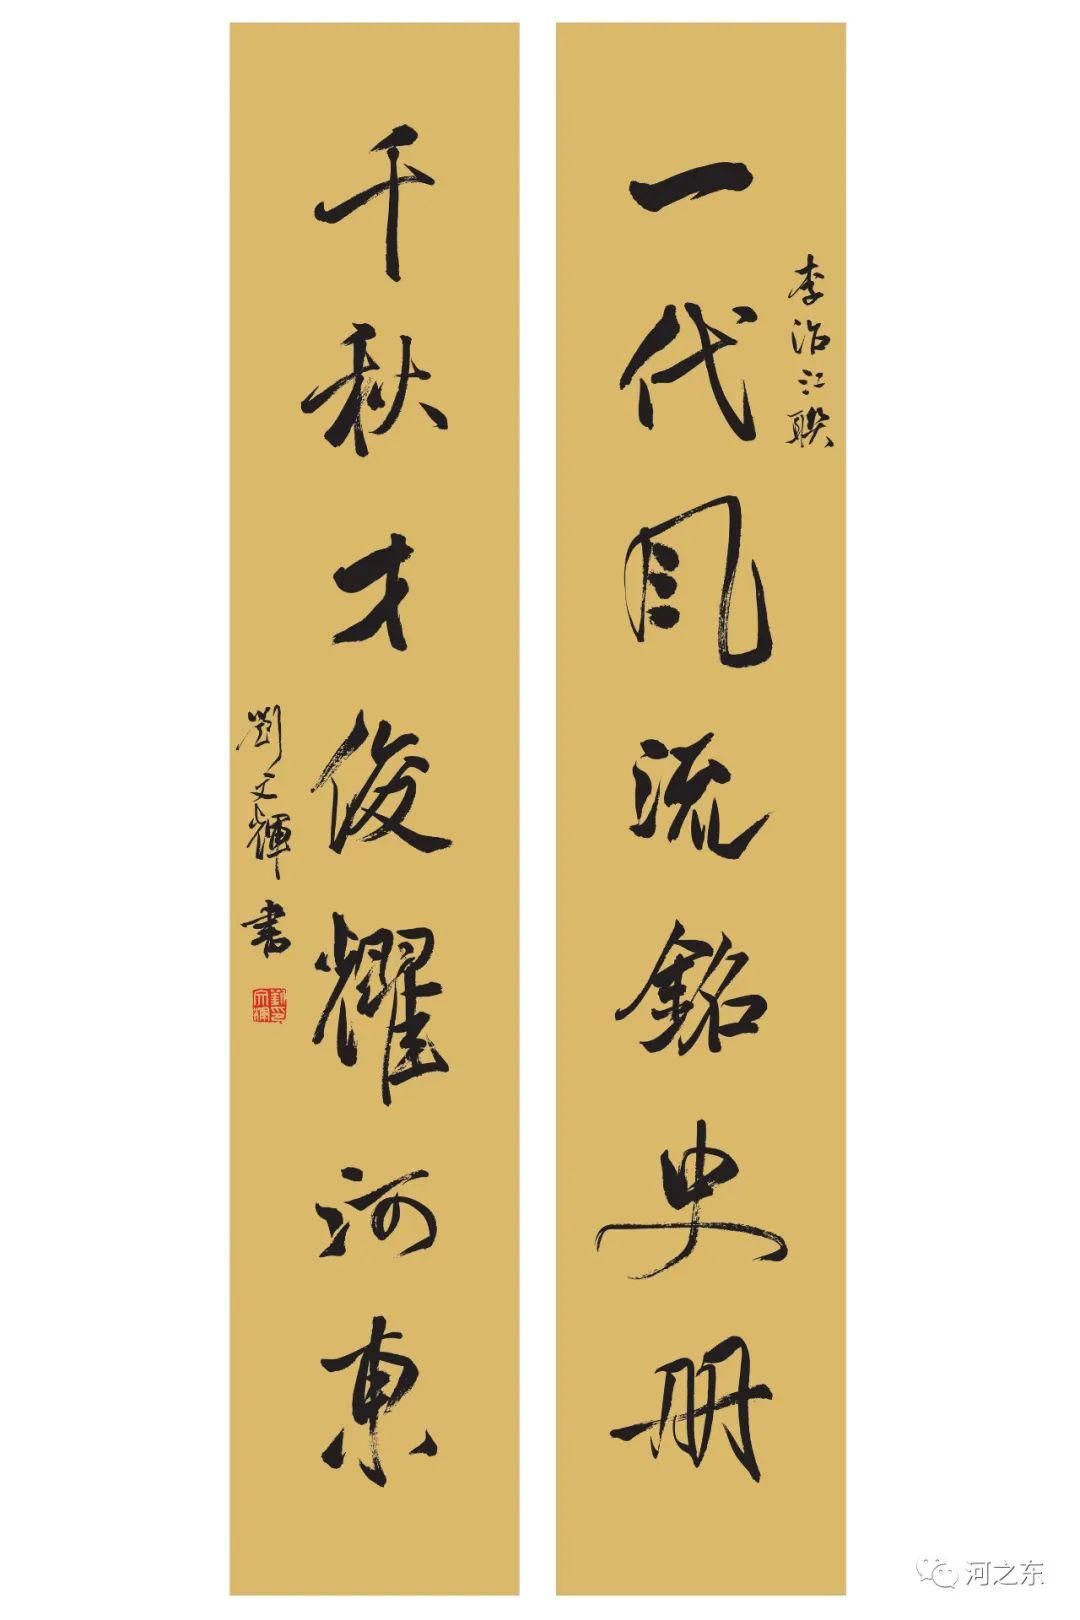 李治江联
一代风流銘史册
千秋才俊耀河東
劉文輝書
河之东